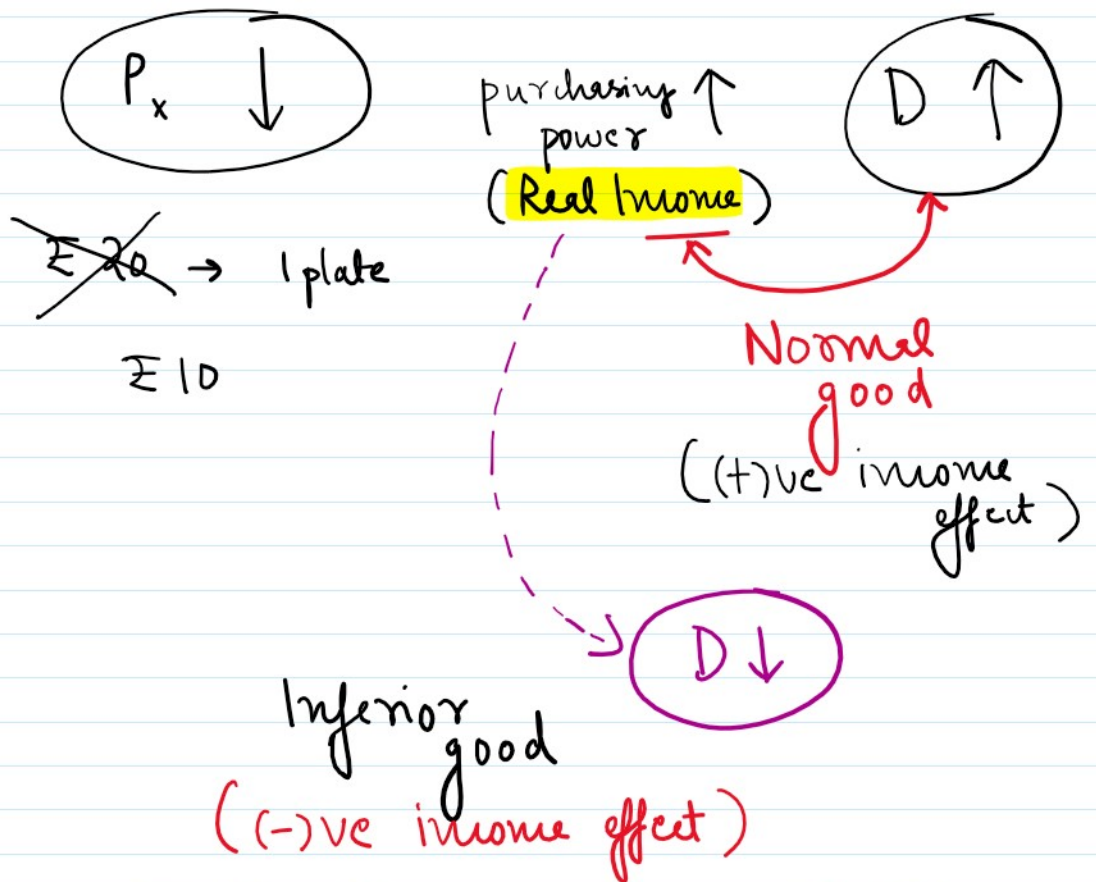 Px ↓
purchasing ↑
power
(Real Income)
D ↑
₹ 20 → 1 plate
₹ 10
Normal
good
((+)ve income
effect)
D ↓
Inferior
good
((-)ve income effect)